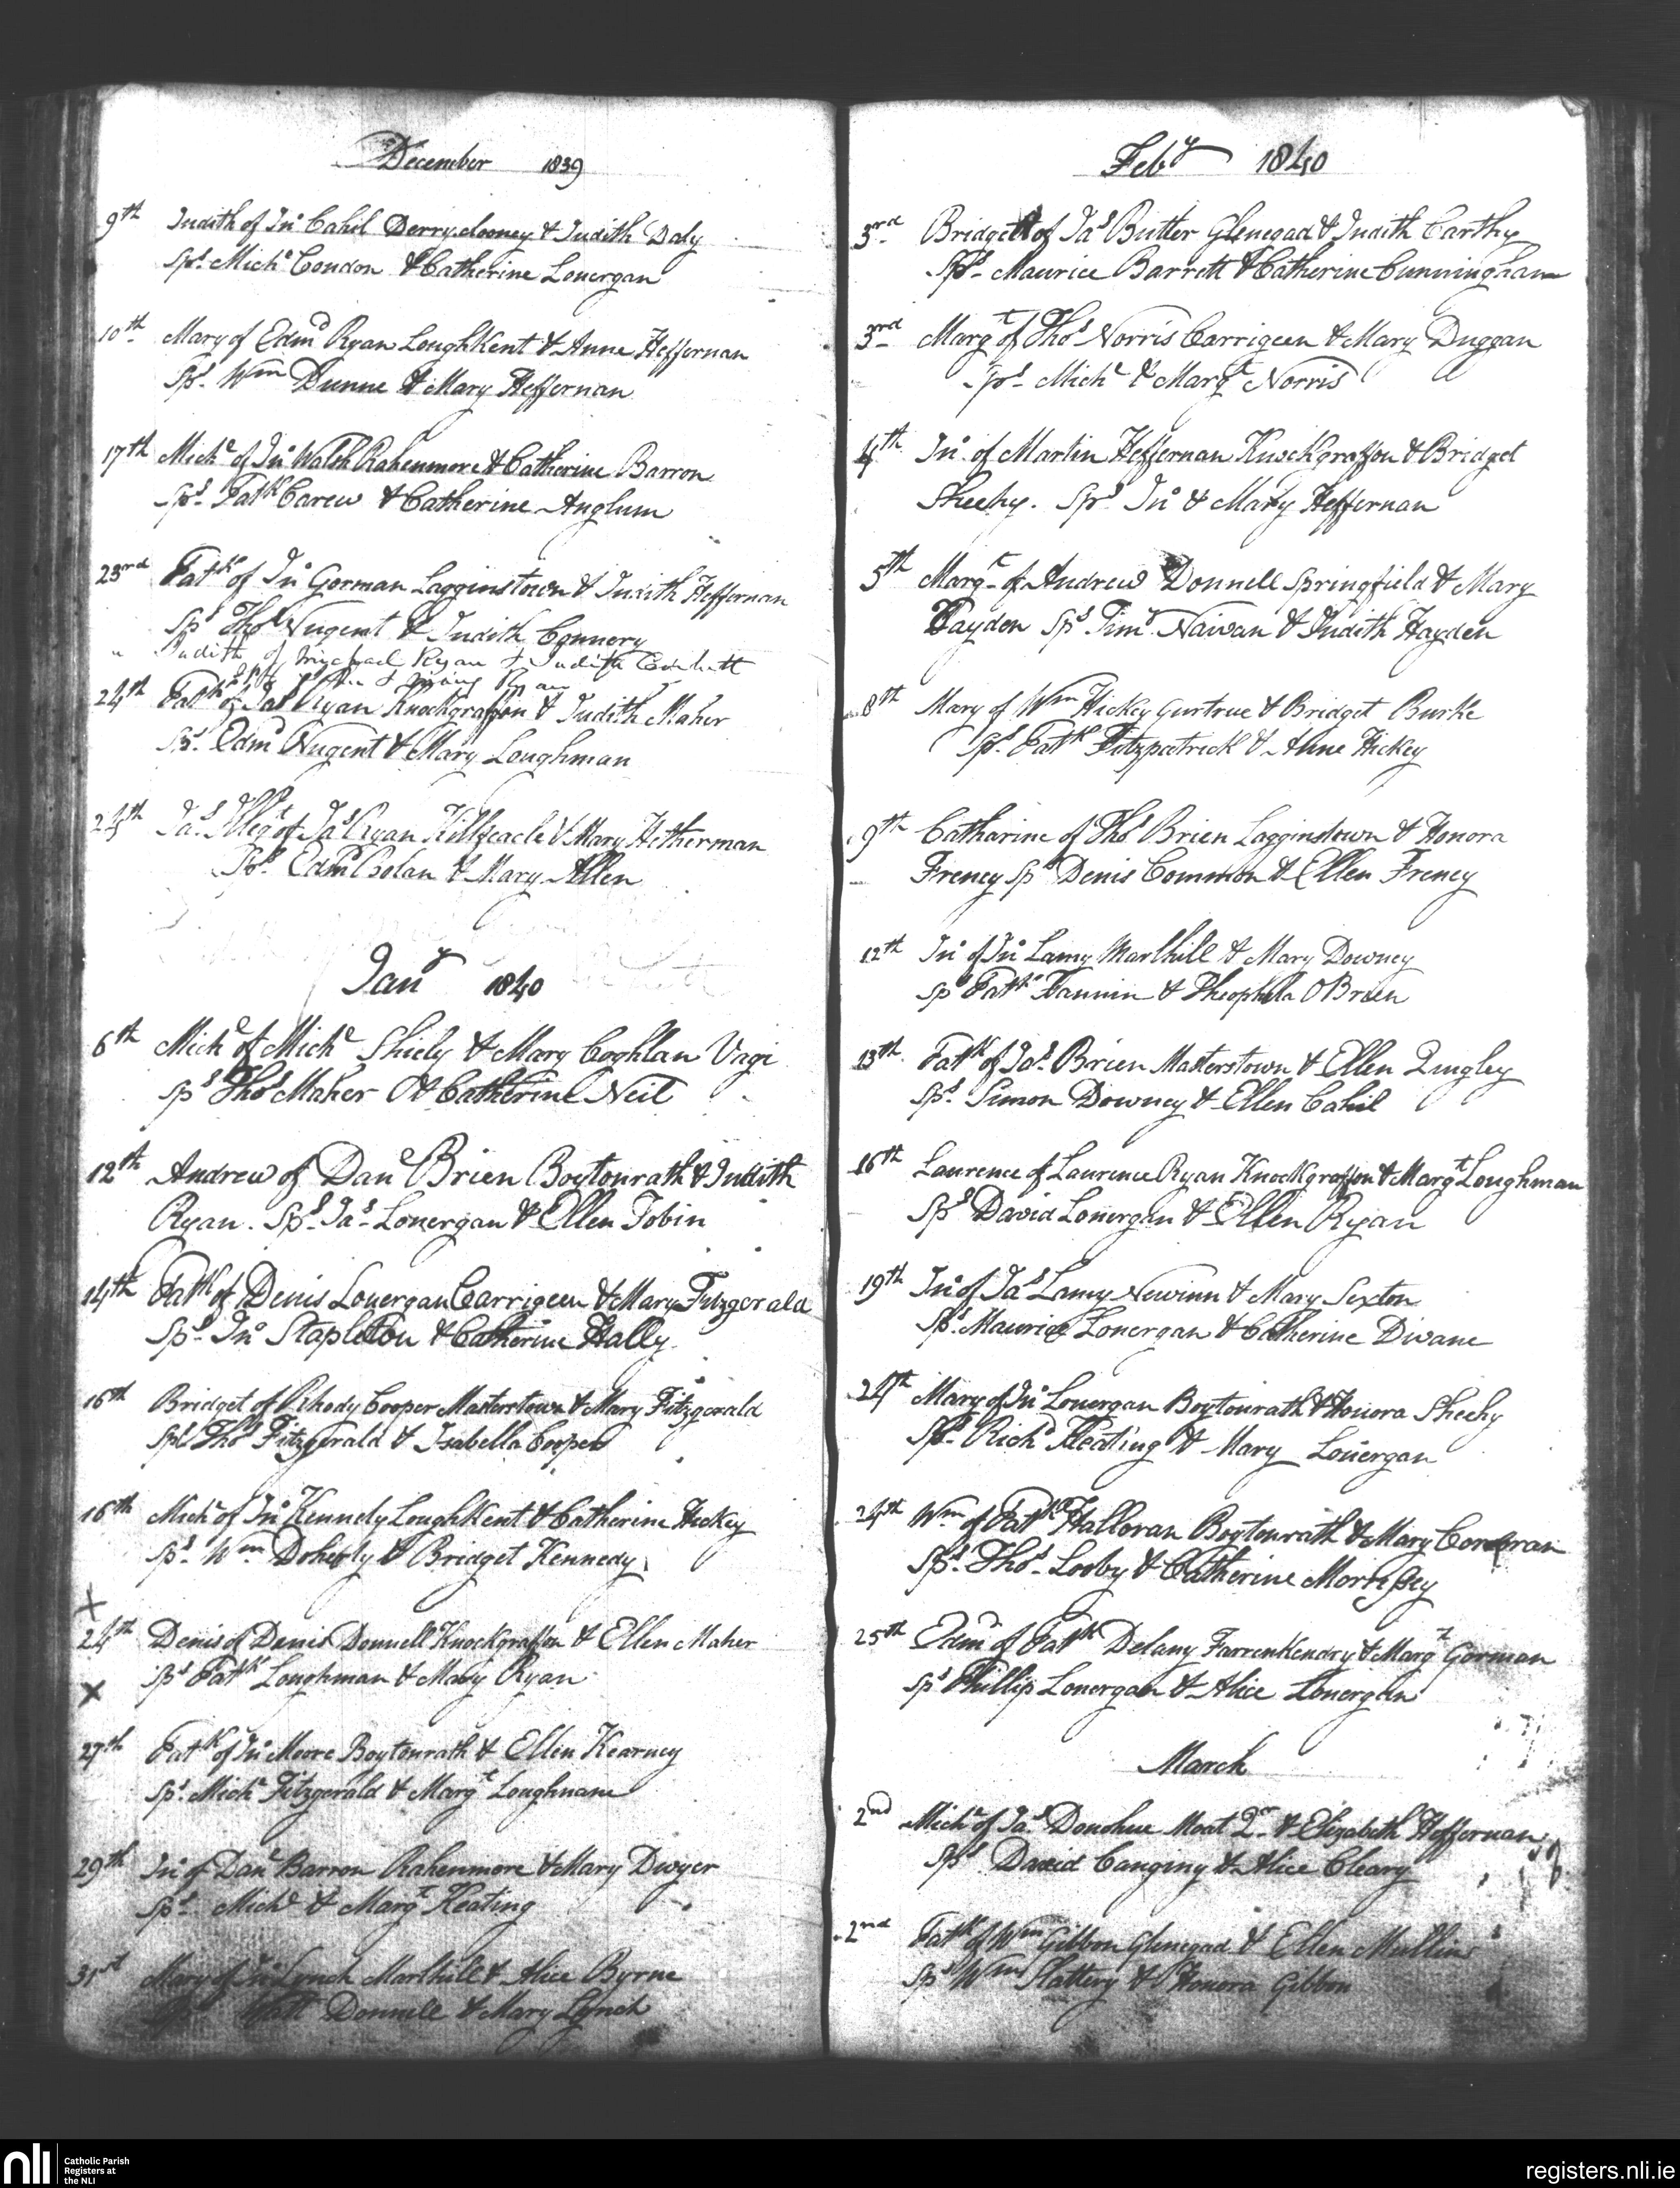 December 1839
9th Judith of Jno Cahil Derryclooney & Judith Daly
Sps Michl Condon & Catherine Lonergan
10th Mary of Edmd Ryan LoughKent & Anne Heffernan
Sps Wm Dunne & Mary Heffernan
17th Michl of Jno Walsh Rahenmore & Catherine Barron
Sps Patk Carew & Catherine Anglum
23rd Patk of Jno Gorman Lagginstown & Judith Heffernan
Sps Thos Nugent & Judith Connery
" Judith of Michael Ryan & Judith Corbett
Ryan
24th Patk of Jas Ryan Knockgraffon & Judith Maher
Sps Edmd Nugent & Mary Loughman
24th Jas Illegt of Jas Ryan Killfeacle & Mary Hetherman
Sps Edmd Bolan & Mary Allen
Jany 1840
6th Michl of Michl Shiely & Mary Coghlan Vagi
Sps Thos Maher & Catherine Neil
12th Andrew of Danl Brien Boytonrath & Judith
Ryan. Sps Jas Lonergan & Ellen Tobin
14th Patk of Denis Lonergan Carrigeen & Mary Fitzgerald
Sps Jno Stapleton & Catherine Hally
16th Bridget of Rhody Cooper Masterstown & Mary Fitzgerald
Sps Thos Fitzgerald & Isabella Cooper
16th Michl of Jno Kennedy LoughKent & Catherine Hickey
Sps Wm Doherty & Bridget Kennedy
X
24th Denis of Denis Donnell Knockgraffon & Ellen Maher
Sps Patk Loughman & Mary Ryan
X
27th Patk of Jno Moore Boytonrath & Ellen Kearney
Sps Michl Fitzgerald & Margt Loughnane
29th Jno of Danl Barron Rahenmore & Mary Dwyer
Sps Michl & Margt Keating
31st Mary of Jno Lynch Marlhill & Alice Byrne
Sps Watt Donnell & Mary Lynch
Feby 1840
3rd Bridgett of Jas Butler Glenegad & Judith Carthy
Sps Maurice Barrett & Catherine Cunningham
3rd Margt of Thos Norris Carrigeen & Mary Duggan
Sps Michl & Margt Norris
4th Jno of Martin Heffernan Knockgraffon & Bridget
Sheehy. Sps Jno & Mary Heffernan
5th Margt of Andrew Donnell Springfield & Mary
Hayden Sps Timy Naivan & Judith Hayden
8th Mary of Wm Hickey Gurtrue & Bridget Burke
Sps Patk Fitzpatrick & Anne Hickey
9th Catharine of Thos Brien Lagginstown & Honora
Freney Sps Denis Common & Ellen Freney
12th Jno of Jno Lamy Marlhill & Mary Downey
Sps Patk Fannin & Theophila OBrien
13th Patk of Jas Brien Masterstown & Ellen Quigley
Sps Simon Downey & Ellen Cahil
16th Laurence of Laurence Ryan Knockgraffon & Margt Loughman
Sps David Lonergan & Ellen Ryan
19th Jno of Jas Lamy Newinn & Mary Sexton
Sps Maurice Lonergan & Catherine Divane
24th Mary of Jno Lonergan Boytonrath & Honora Sheehy
Sps Richd Keating & Mary Lonergan
24th Wm of Patk Halloran Boytonrath & Mary Corcoran
Sps Thos Looby & Catherine Morrissey
25th Edmd of Patk Delany Farrenkendry & Margt Gorman
Sps Phillip Lonergan & Alice Lonergan
March
2nd Michl of Jas Donohue Moat Qr & Elizabeth Heffernan
Sps David Canginy & Alice Cleary
2nd Patk of Wm Gibbon Glenegad & Ellen Mullins
Sps Wm Slattery & Honora Gibbon
nli Catholic Parish
Registers at
the NLI
registers.nli.ie